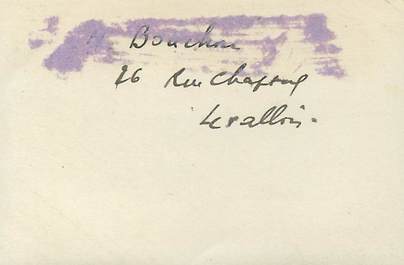 Bouchon
26 Rue Chaptal
Levallois.